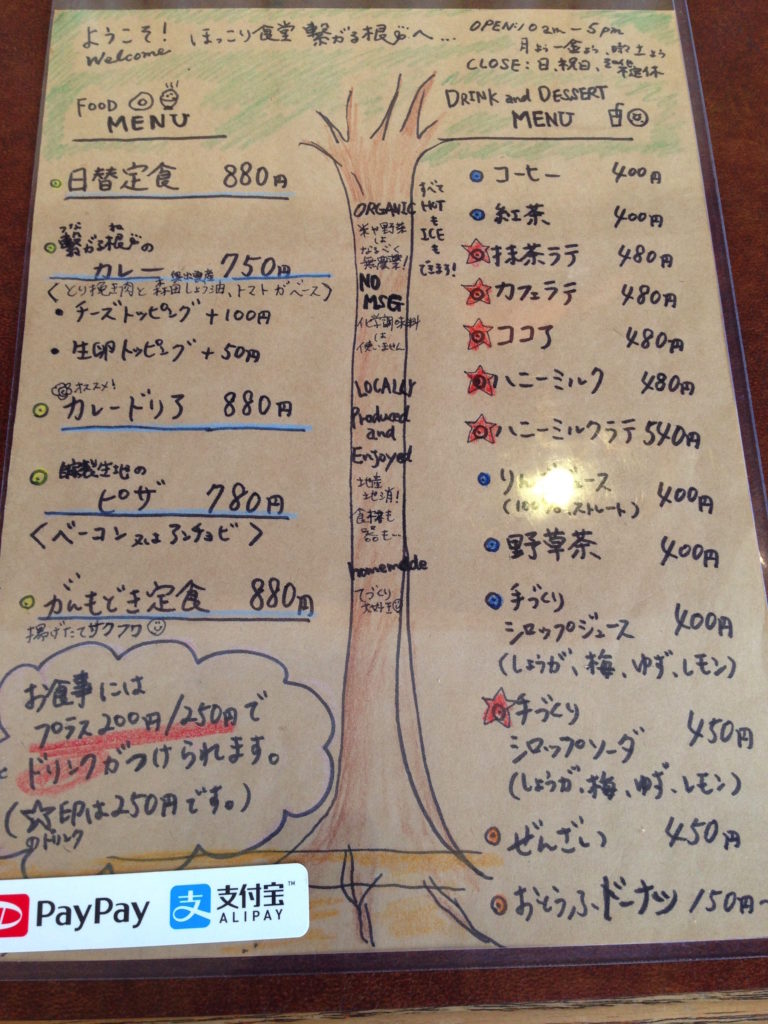 ようこそ! ほっこり食堂 繋がる根っこへ...
Welcome
OPEN:10am-5pm
月よう-金よう、土よう
CLOSE:日、祝日、
FOOD
MENU
日替定食 880円
つな ね
繋がる根っこの
カレー 750円
<とり挽き肉と森田しょう油、トマトがベース>
・チーズトッピング+100円
・生卵トッピング+50円
オススメ!
カレードリア 880円
自家製生地の
ピザ 780円
<ベーコン又はアンチョビ>
がんもどき定食 880円
揚げたてサクフワ
お食事には
プラス200円/250円で
ドリンクがつけられます。
(☆印は250円です。)
のドリンク
PayPay
支付宝™
ALIPAY
ORGANIC
米や野菜
は
なるべく
無農薬!
NO
MSG
化学調味料
は
使いません
LOCALLY
Produced
and
Enjoyed
地産
地消!
食材も
器も...
homemade
てづくり
大好き
すべて
HOT
も
ICE
も
できます!
DRINK and DESSERT
MENU
コーヒー 400円
紅茶 400円
抹茶ラテ 480円
カフェラテ 480円
ココア 480円
ハニーミルク 480円
ハニーミルクラテ 540円
りんごジュース 400円
(100%ストレート)
野草茶 400円
手づくり
シロップジュース 400円
(しょうが、梅、ゆず、レモン)
手づくり
シロップソーダ 450円
(しょうが、梅、ゆず、レモン)
ぜんざい 450円
おとうふドーナツ 150円~